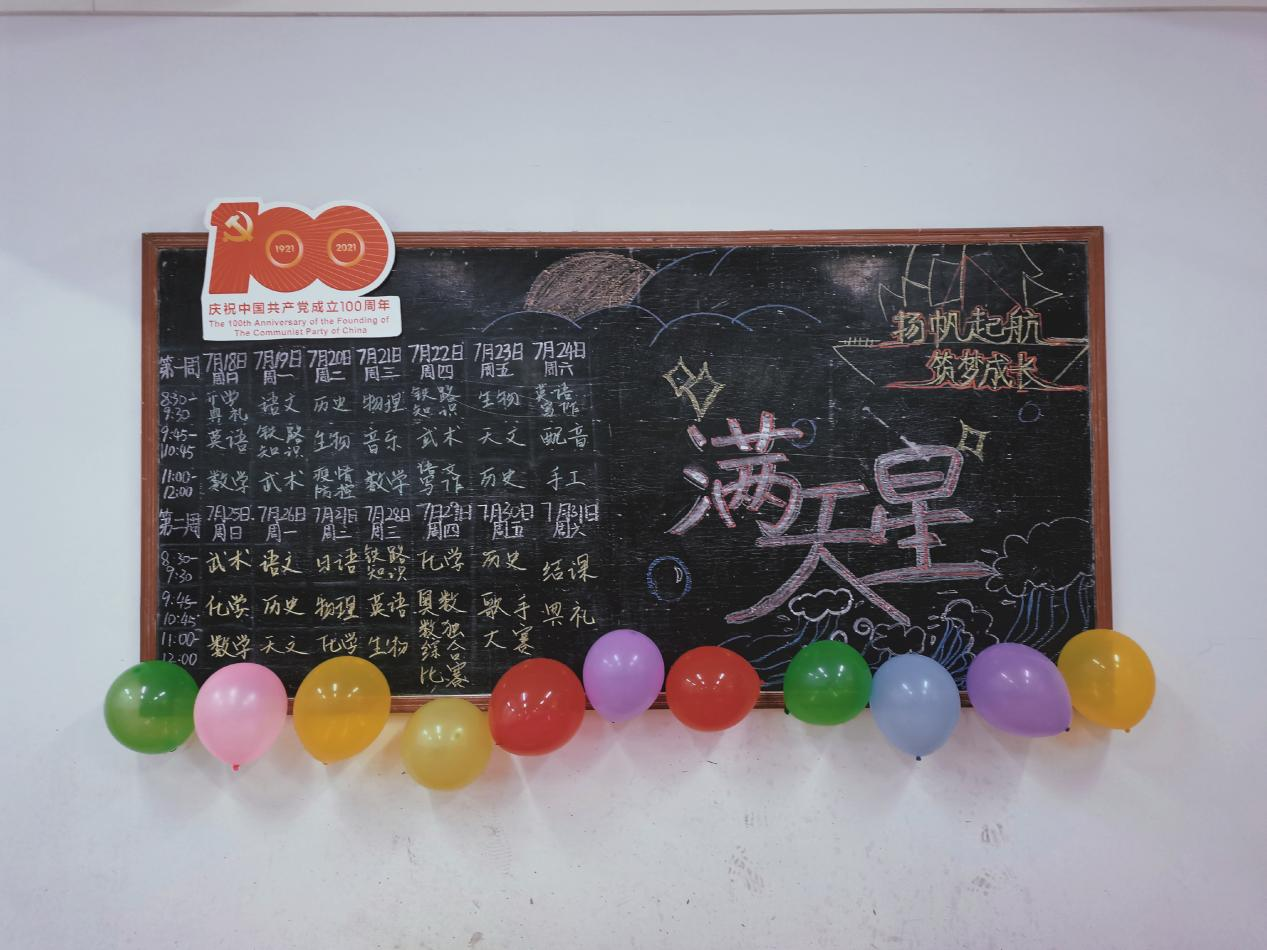 1921 2021
庆祝中国共产党成立100周年
The 100th Anniversary of the Founding of
The Communist Party of China
扬帆起航
筑梦成长
满天星
第一周 7月18日 7月19日 7月20日 7月21日 7月22日 7月23日 7月24日
周日 周一 周二 周三 周四 周五 周六
8:30- 开学 语文 历史 物理 铁路 生物 英语
9:30 典礼 知识 写作
9:45- 英语 铁路 生物 音乐 武术 天文 配音
10:45 知识
11:00- 数学 武术 疫情 数学 语文 历史 手工
12:00 防控 写作
第二周 7月25日 7月26日 7月27日 7月28日 7月29日 7月30日 7月31日
周日 周一 周二 周三 周四 周五 周六
8:30- 武术 语文 日语 铁路 化学 历史 结课
9:30 知识
9:45- 化学 历史 物理 英语 奥数 歌手 典礼
10:45 数独 大赛
11:00- 数学 天文 化学 生物 综合
12:00 比赛